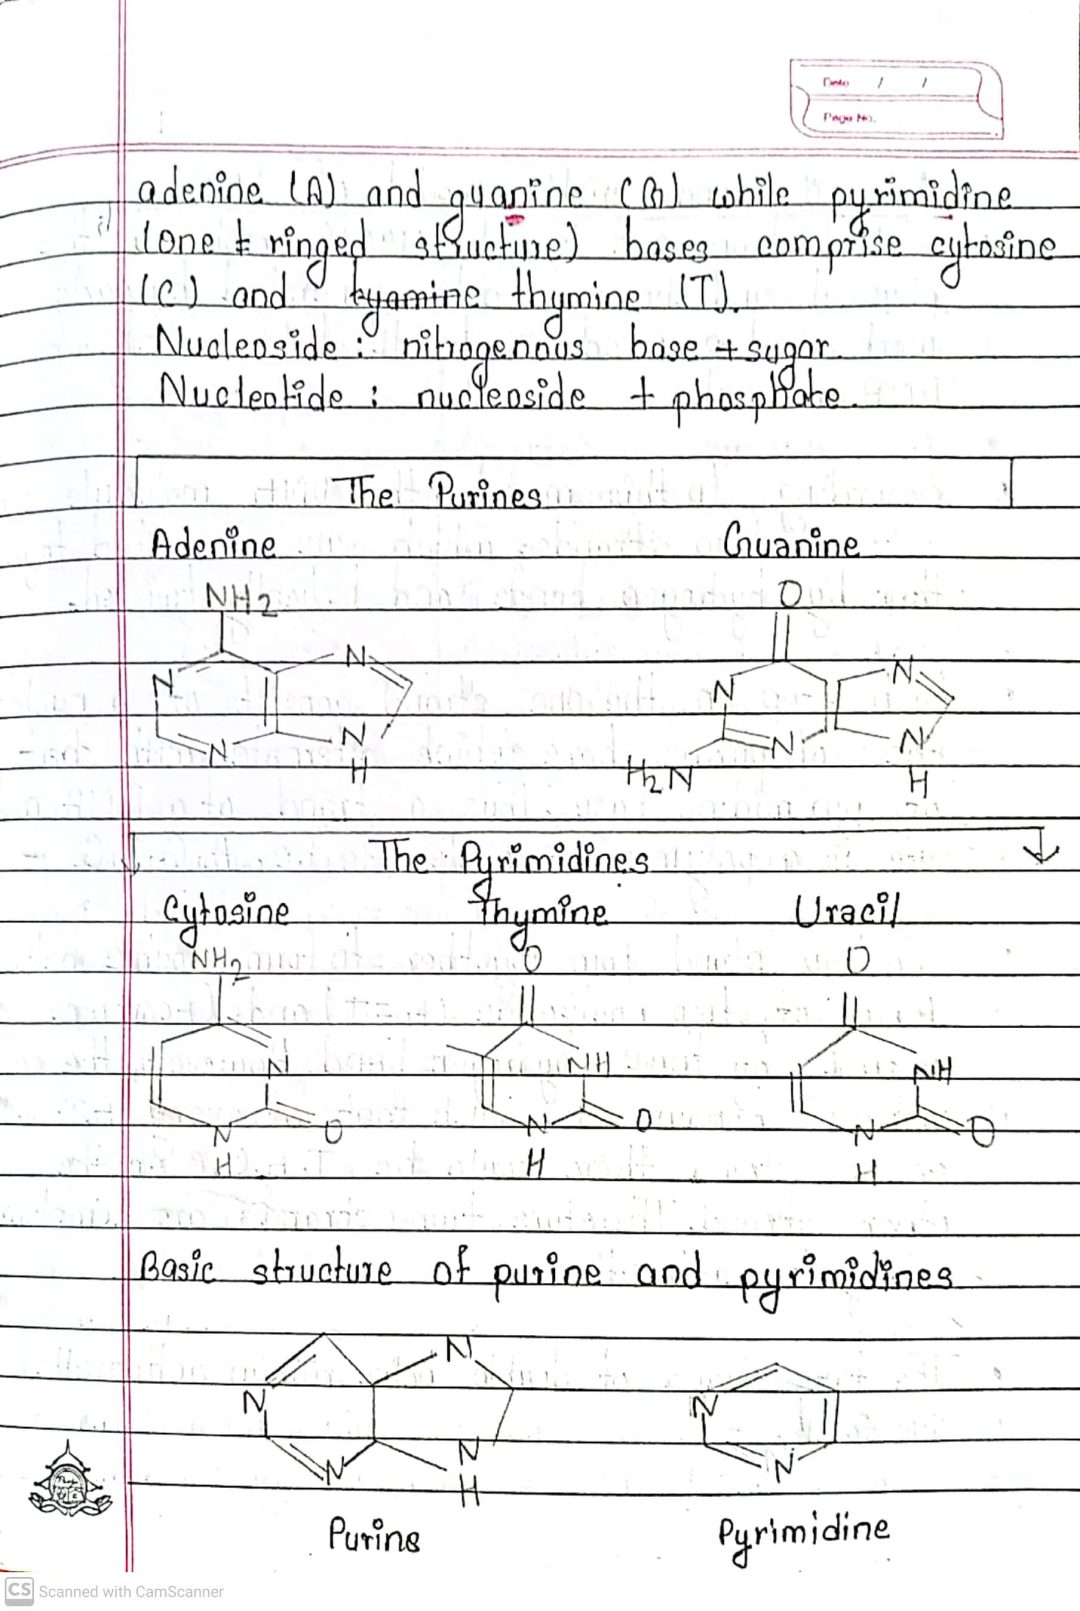 Date / /
Page No.
adenine (A) and guanine (G) while pyrimidine
(one ringed structure) bases comprise cytosine
(C) and tyamine thymine (T).
Nucleoside : nitrogenous base + sugar.
Nucleotide : nucleoside + phosphate.
The Purines
Adenine Guanine
NH2 O
N N N N
N N N N
H H2N H
The Pyrimidines
Cytosine Thymine Uracil
NH2 O O
N NH NH
N O N O N O
H H H
Basic structure of purine and pyrimidines
N
N N
N N N
H
Purine Pyrimidine
CS Scanned with CamScanner